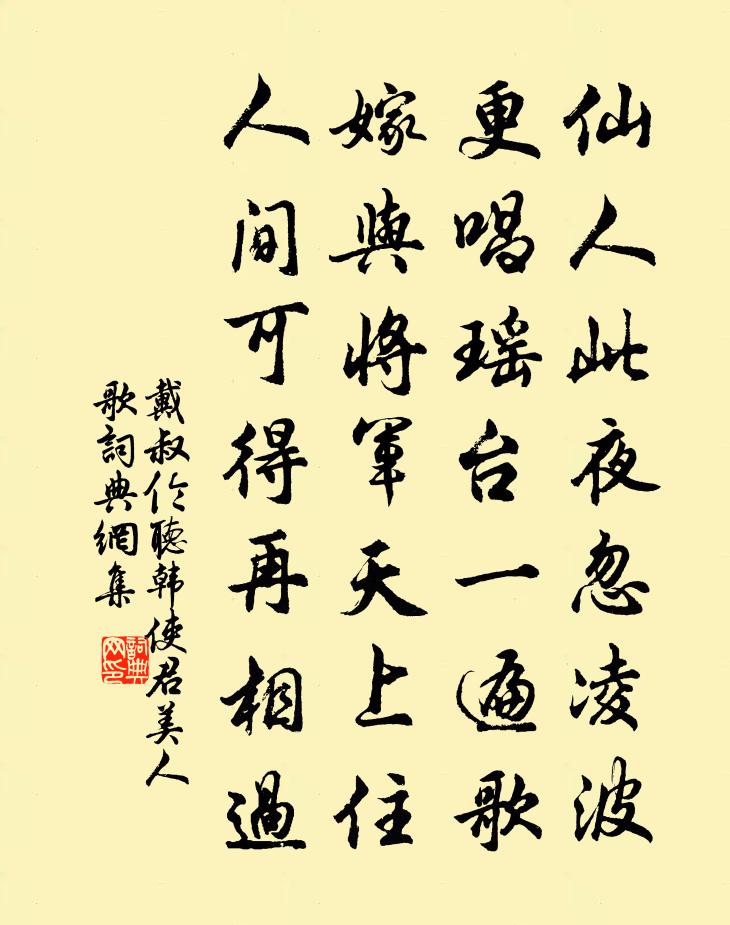 仙人此夜忽凌波
更唱瑶台一遍歌
嫁與將軍天上住
人间可得再相過
戴叔伦聽韩使君美人
歌詞典網集
詞典网印